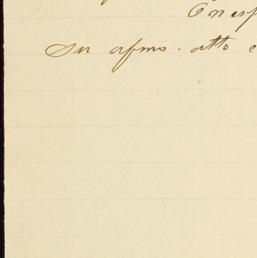 En esp
Su afmo. atto